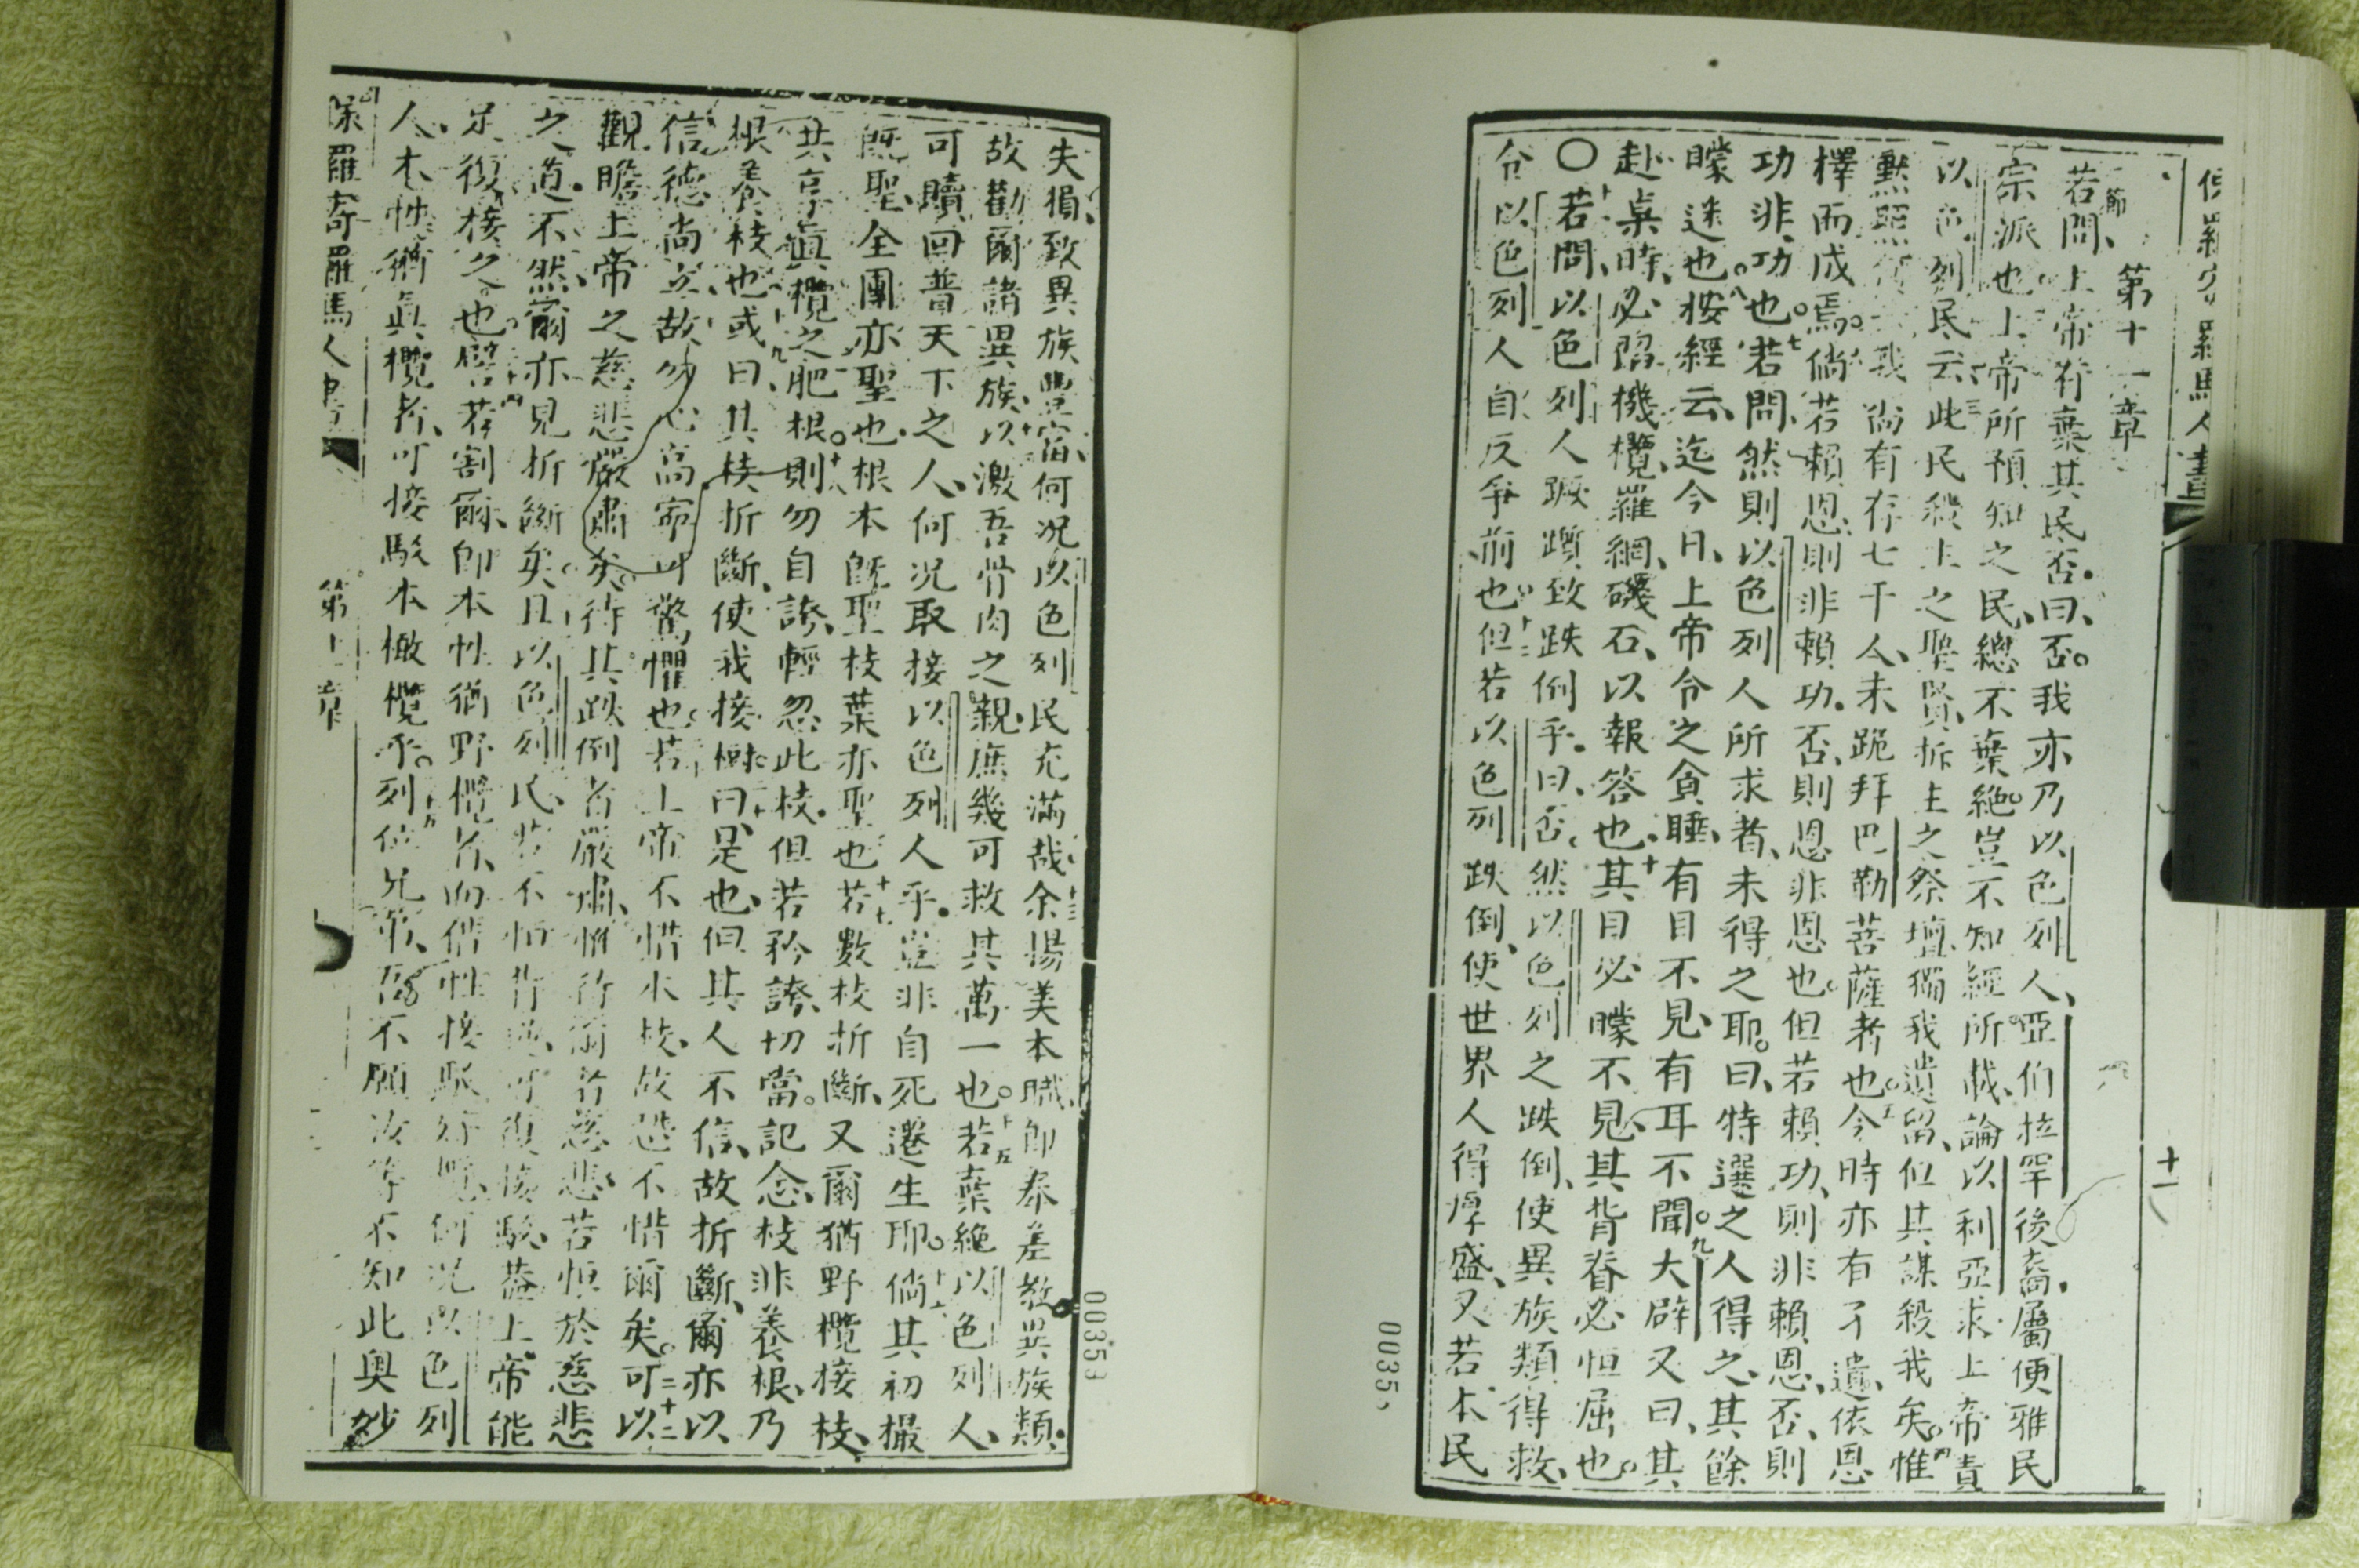 第十一章
節
若問、上帝有棄其民否。曰、否。我亦乃以色列人、亞伯拉罕後裔、屬便雅民
宗派也。上帝所預知之民、總不棄絕。豈不知經所載、論以利亞求上帝責
以色列民云、三此民殺主之聖賢、拆主之祭壇、獨我遺留、但其謀殺我矣。四惟
默照 我尚有存七千人、未跪拜巴勒菩薩者也。五今時亦有孑遺、依恩
擇而成焉。六倘若賴恩、則非賴功。否則恩非恩也。但若賴功、則非賴恩、否則
功非功也。七若問、然則以色列人所求者、未得之耶。曰、特選之人得之、其餘
矇迷也。八按經云、迄今日、上帝令之貪睡、有目不見、有耳不聞。九大辟又曰、其
赴桌時、必陷機檻、羅網、礙石、以報答也。十其目必矇不見、其背脊必恒屈也。
〇十一若問、以色列人蹶躓致跌倒乎。曰、否。然以色列之跌倒、使異族類得救、
令以色列人自反爭前也。十二但若以色列跌倒、使世界人得厚盛、又若本民
十一
0035
失損、致異族豐富、何況以色列民充滿哉。十三余揚美本職、即奉差教異族類。
故勸爾諸異族、十四以激吾骨肉之親、庶幾可救其萬一也。十五若棄絕以色列人、
可贖回普天下之人、何況取接以色列人乎。豈非自死還生耶。十六倘其初撮
旣聖、全團亦聖也。根本旣聖、枝葉亦聖也。十七若數枝折斷、又爾猶野欖接枝、
共享眞欖之肥根。十八則勿自誇、輕忽此枝。但若矜誇、切當記念、枝非養根、乃
根養枝也。十九或曰、其枝折斷、使我接樹。二十曰、是也、但其人不信、故折斷、爾亦以
信德尚立。故勿心高、寧可驚懼也。二十一若上帝不惜本枝、故恐不惜爾矣。二十二可以
觀瞻上帝之慈悲嚴肅矣。待其跌倒者嚴肅、惟待爾者慈悲、若恒於慈悲
之道。不然、爾亦見折斷矣。且以色列民、若不恒背逆、可復接駁、蓋上帝能
足復接之也。二十四譬若割爾、即本性猶野欖者、而借性接駁好欖、何況以色列
人、本性猶眞欖者、可接駁本橄欖乎。二十五列位兄弟、吾不願汝等不知此奧妙
保羅寄羅馬人書
第十一章
00353